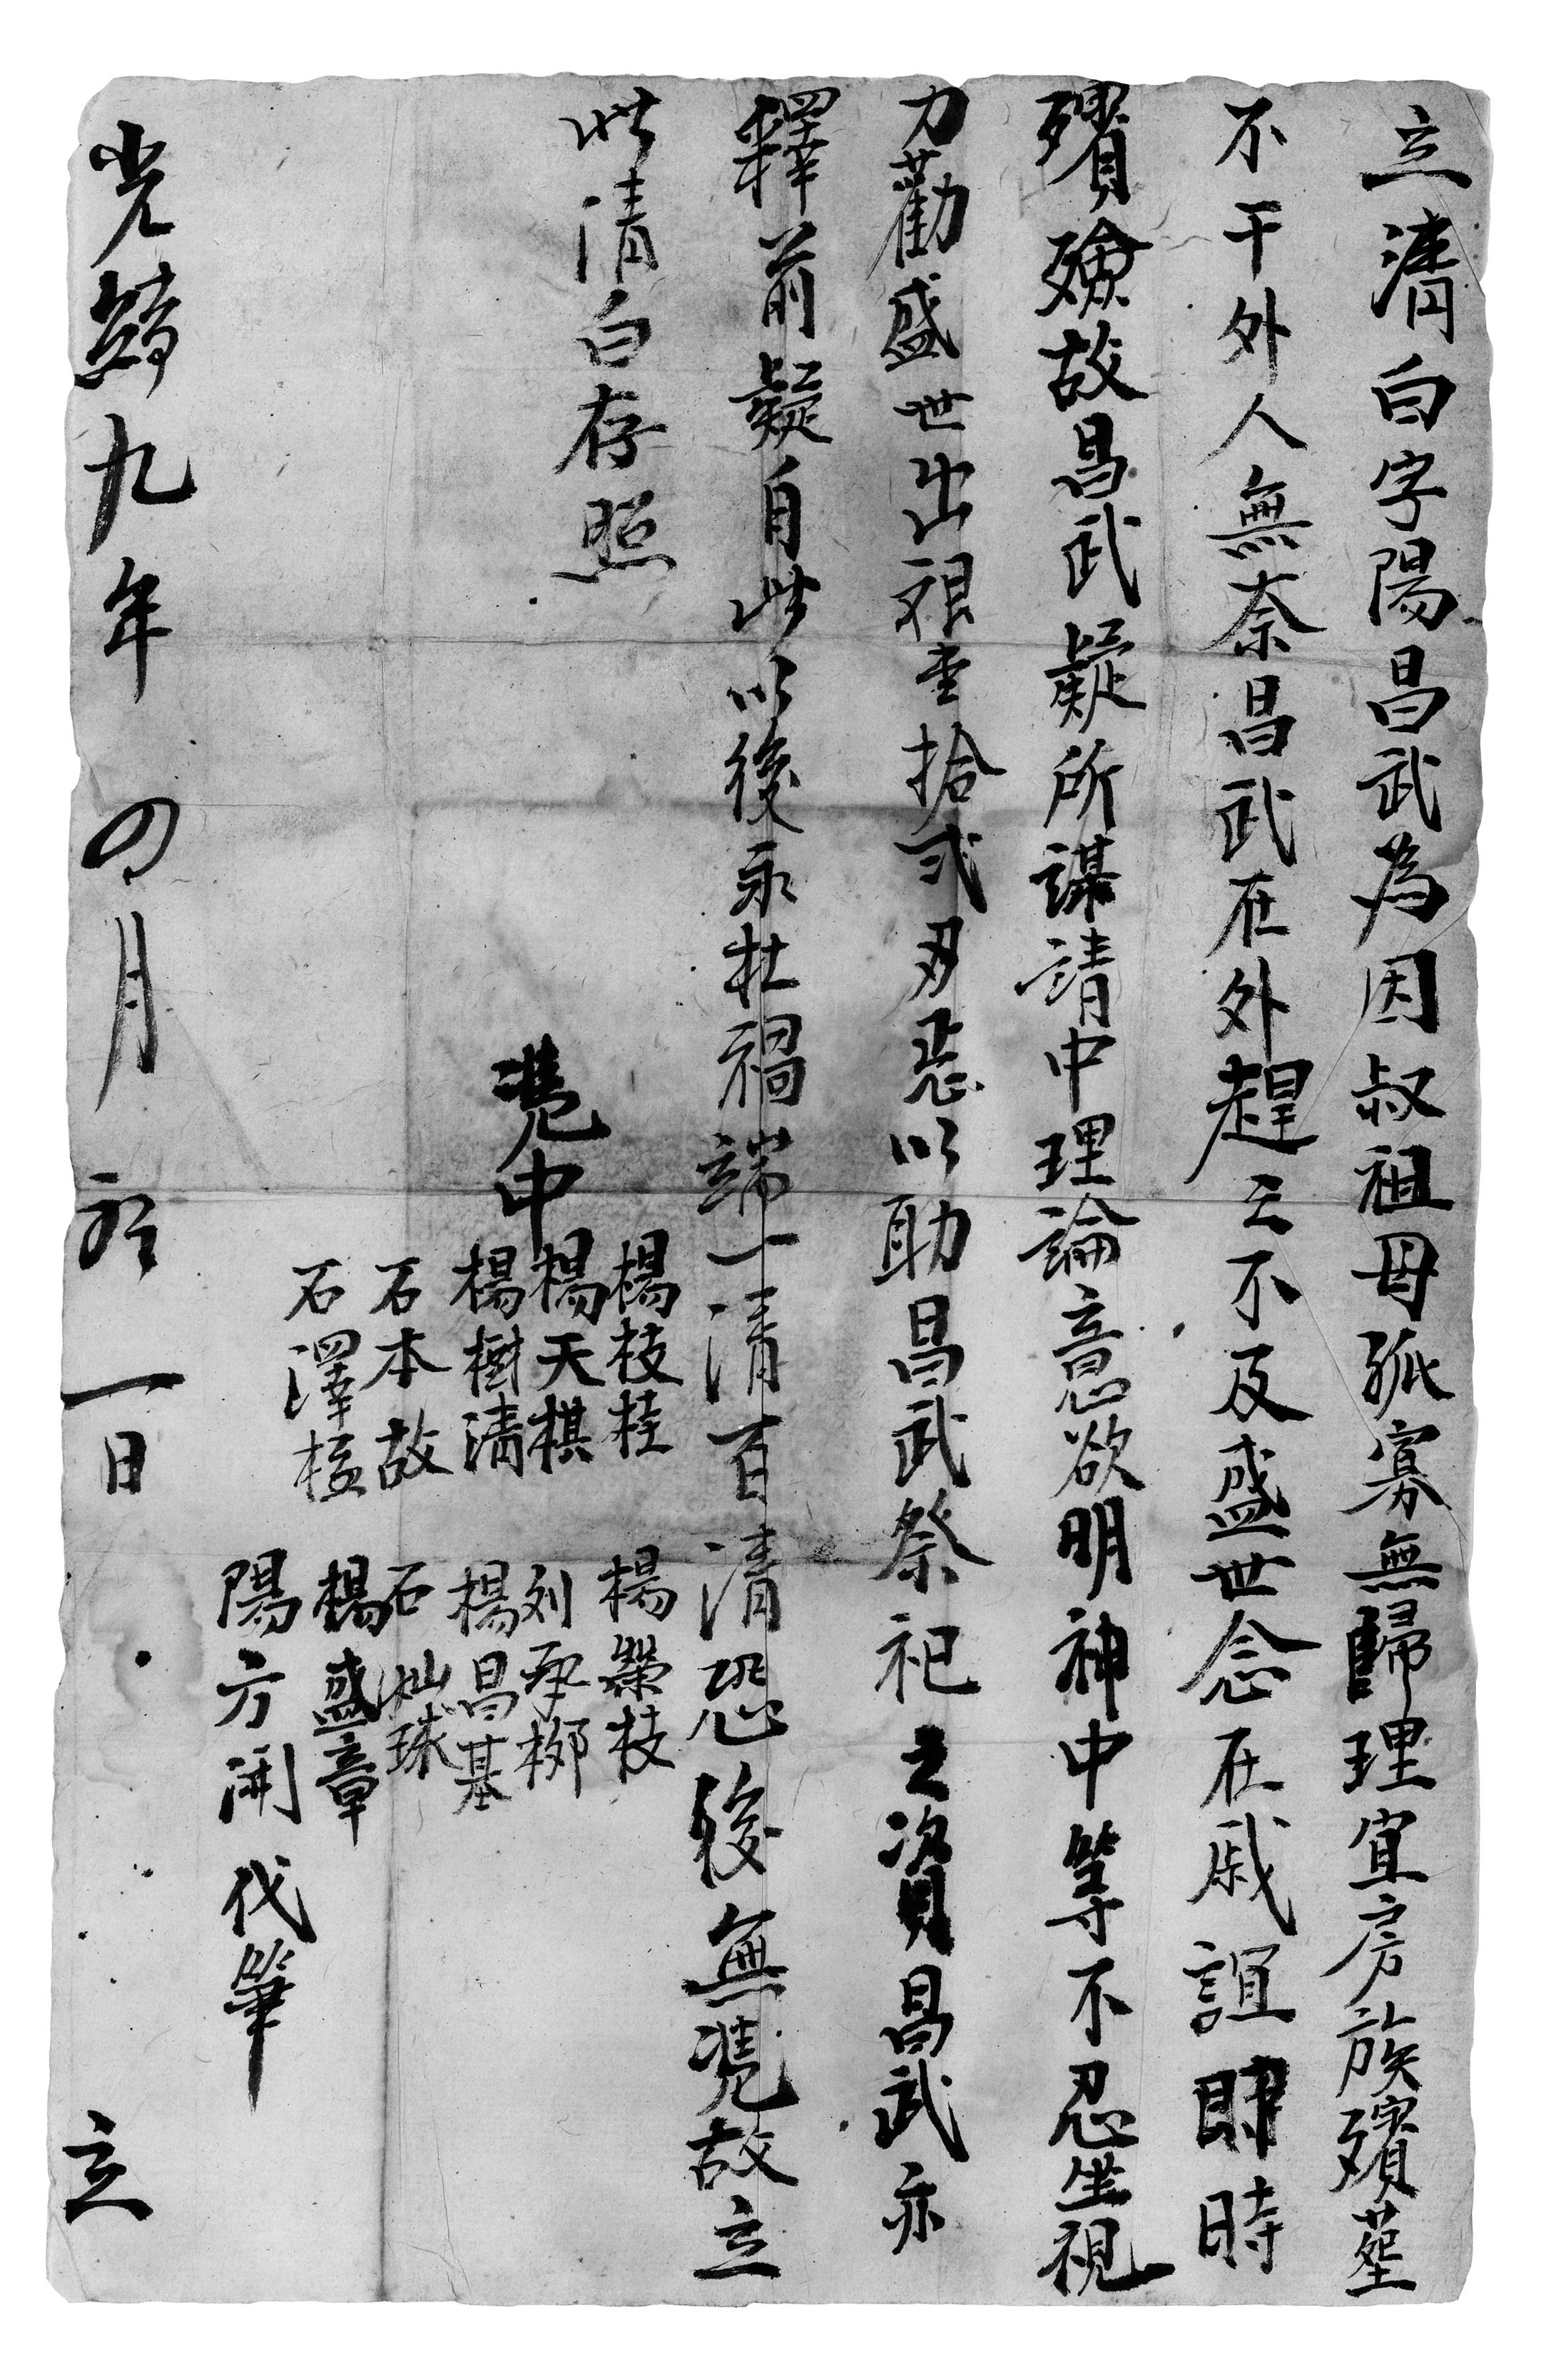 立清白字陽昌武為因叔祖母孤寡無歸理宜房族殯塟
不干外人無奈昌武在外趕之不及盛世念在戚誼即時
殯殮故昌武疑所謀請中理論意欲明神中等不忍坐視
力勸盛世出銀壹拾弍刄忢以助昌武祭祀之資昌武亦
釋前疑自此以後永杜禍端一清百清恐後無凴故立
此清白存照
凴中
楊枝桂 楊榮枝
楊天棋 刘承柳
楊樹清 楊昌基
石本故 石灿球
石澤 楊盛章
陽方開代筆
光緒九年四月初一日 立